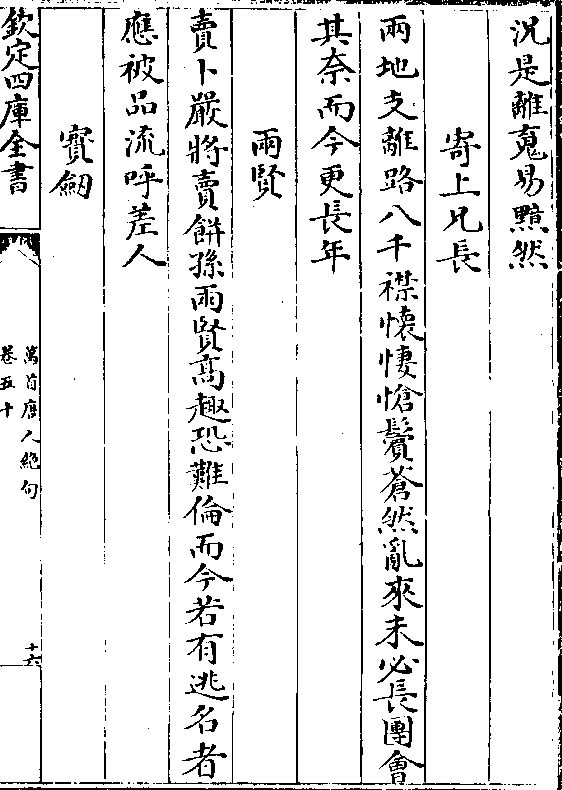 況是離䰟易黯然
寄上兄長
兩地支離路八千襟懐悽愴鬢蒼然亂來未必長團會
其奈而今更長年
兩賢
賣卜嚴將賣餅孫兩賢髙趣恐難倫而今若有逃名者
應被品流呼差人
寳劒
欽定四庫全書
萬首唐人絶句
卷五十
十六